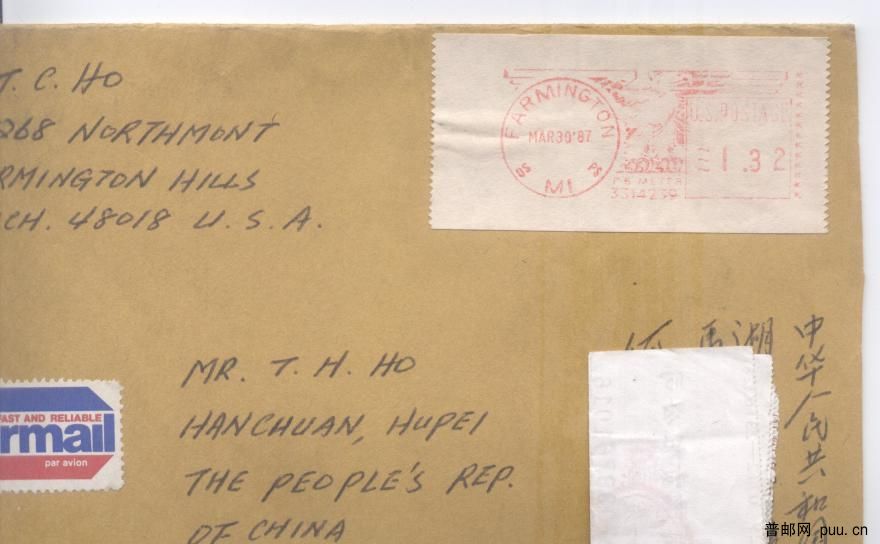 T. C. HO
268 NORTHMONT
RMINGTON HILLS
CH. 48018 U.S.A.
FARMINGTON
MAR30'87
DS PS
MI
U.S. POSTAGE
1.32
PB METER
3314239
FAST AND RELIABLE
rmail
par avion
MR. T. H. HO
HANCHUAN, HUPEI
THE PEOPLE'S REP.
OF CHINA
中华人民共和国
湖
普邮网 puu.cn